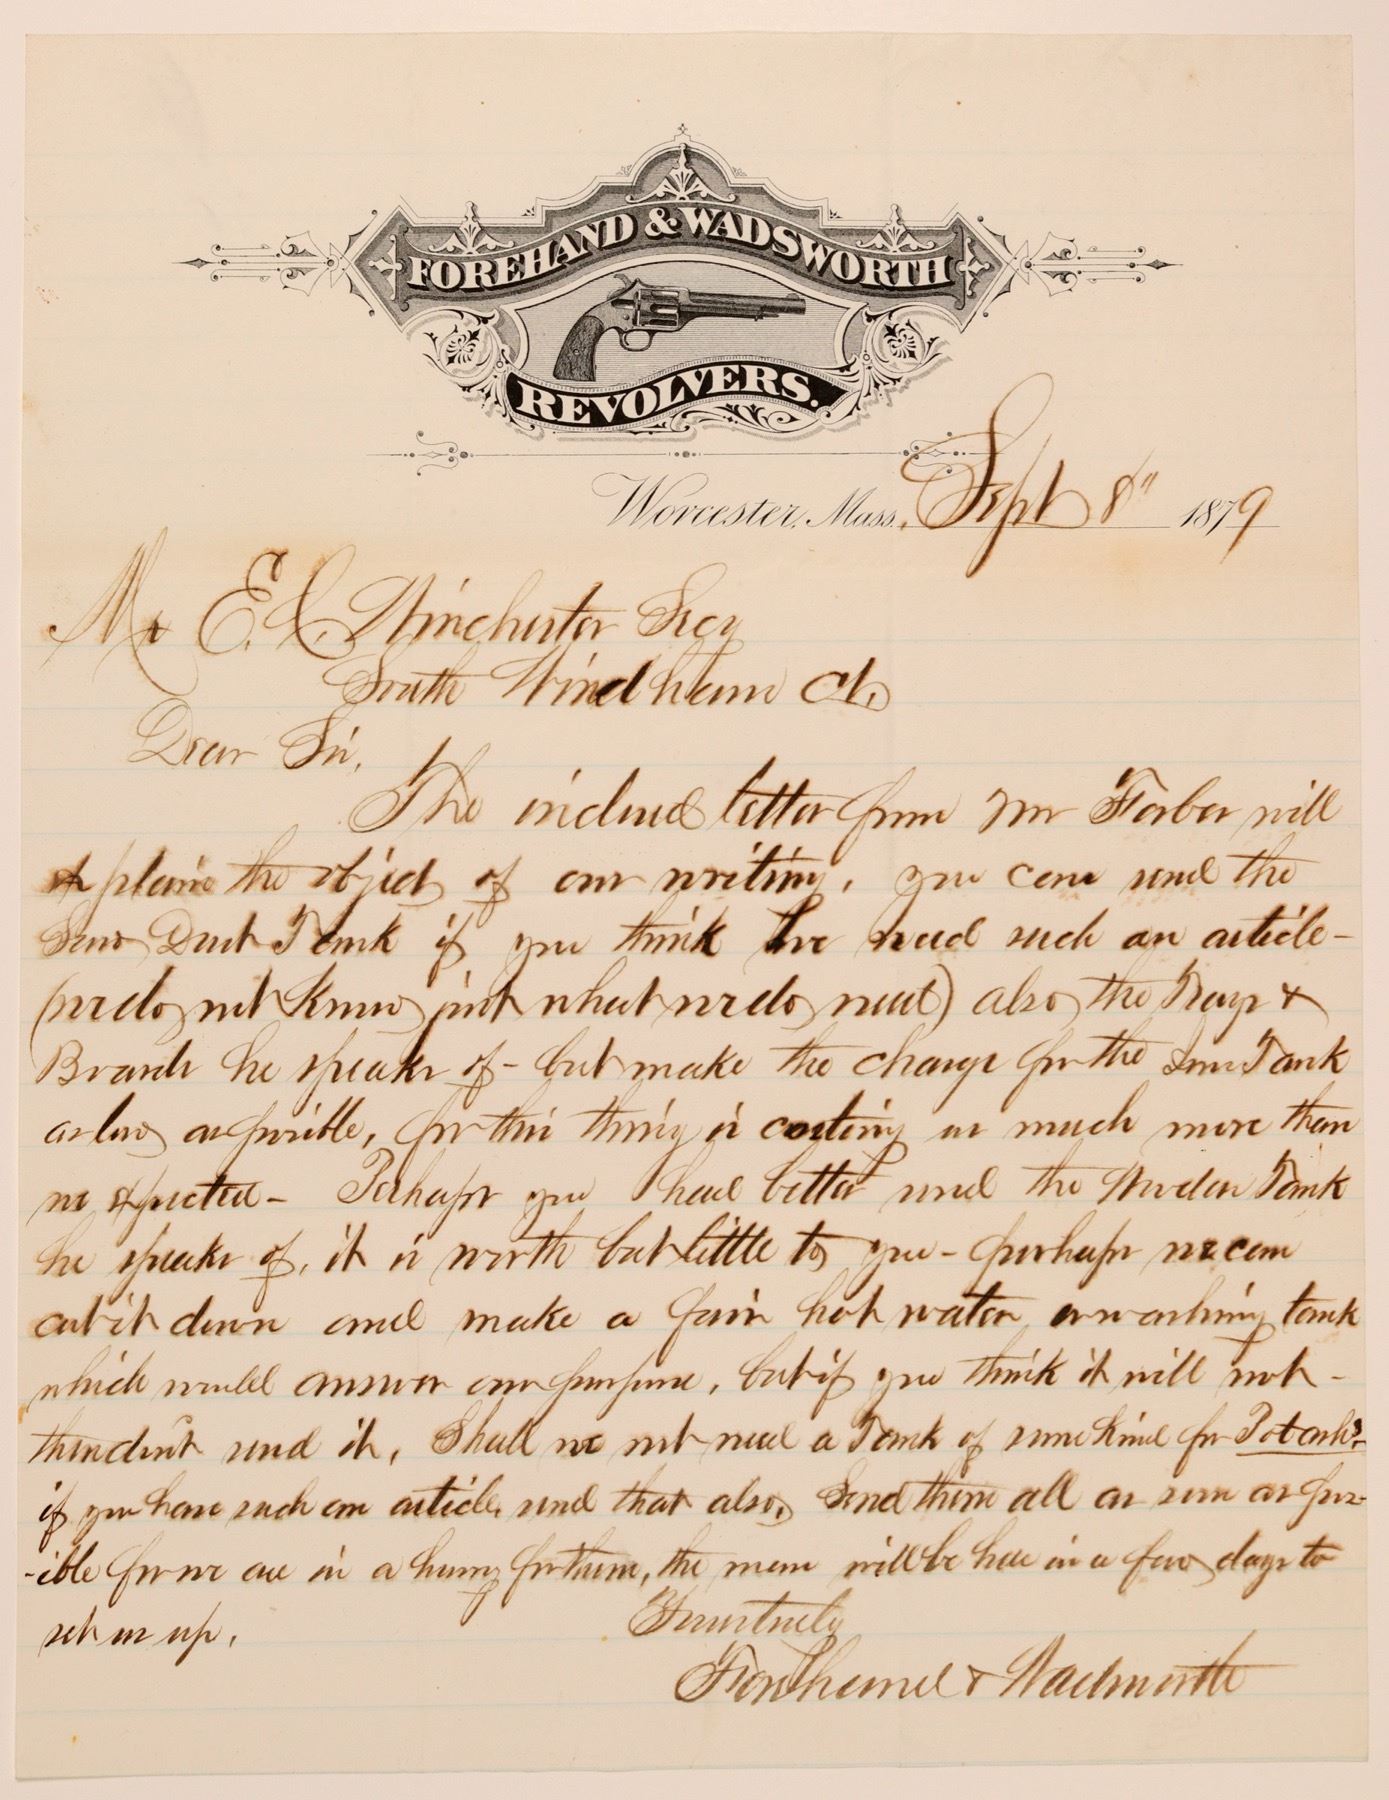 FOREHAND & WADSWORTH
REVOLVERS.
Worcester, Mass., Sept 8" 1879
Mr E. C. Winchester Secy
South Windham Ct,
Dear Sir,
The inclosed letter from Mr Forbes will
explain the object of our writing, you can send the
Saw Dust Tank if you think we need such an article -
(we do not know just what we do need) also the Trays &
Boards he speaks of - but make the charge for the Tank
as low as possible, for this thing is costing us much more than
we expected - Perhaps you had better send the Wooden Tank
he speaks of, it is worth but little to you - perhaps we can
cut it down and make a fair hot water or washing tank
which would answer our purpose, but if you think it will not -
then dont send it, Shall we not need a Tank of some kind for Potash? -
if you have such an article, send that also, Send them all as soon as pos-
-ible for we are in a hurry for them, the men will be here in a few days to
set us up.
Yours truly
Forehand & Wadsworth